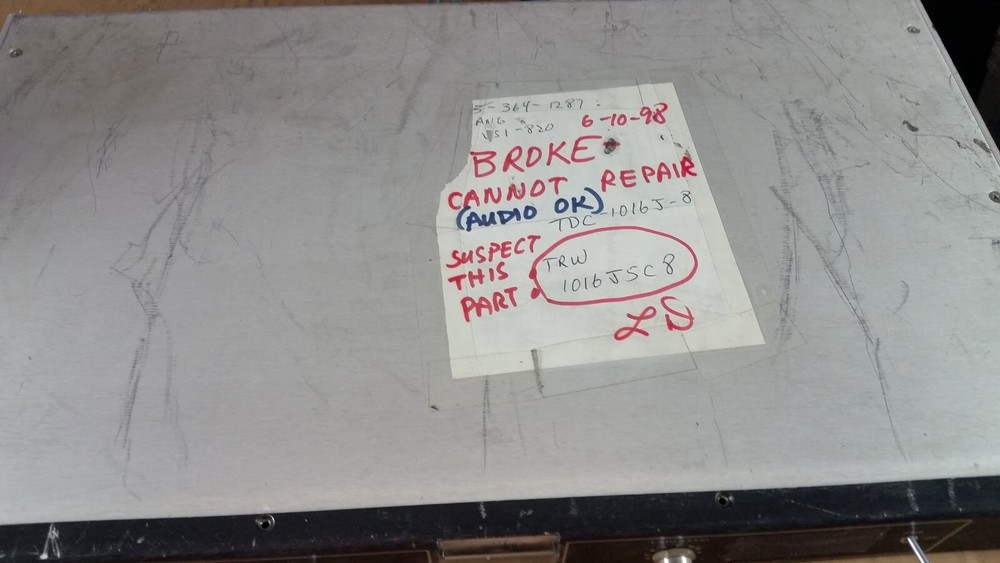 5-364-1287
6-10-98
VS1-820
BROKE
CANNOT REPAIR
(AUDIO OK)
TDC-1016J-8
SUSPECT
THIS
PART:
TRW
1016J5C8
LD